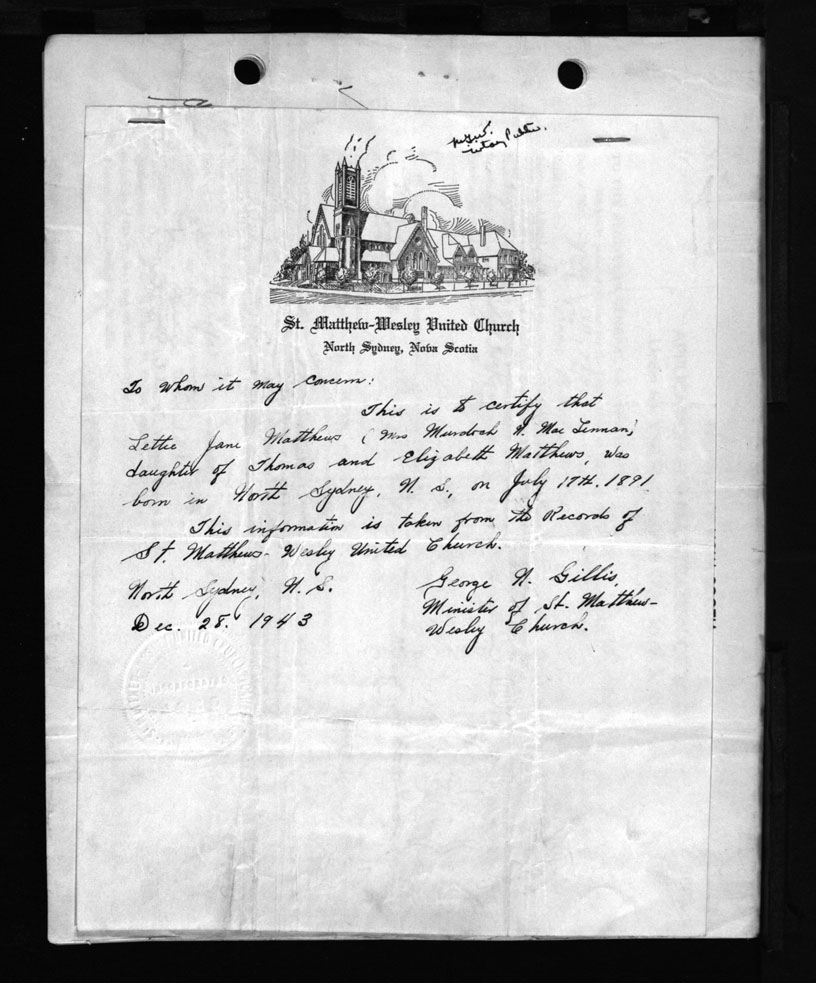 St. Matthew-Wesley United Church
North Sydney, Nova Scotia
To Whom it may Concern:
This is to certify that
Lettie Jane Matthews (Mrs Murdoch N. Mac Lennan)
daughter of Thomas and Elizabeth Matthews, was
born in North Sydney, N. S., on July 17th. 1891
This information is taken from the Records of
St. Matthews-Wesley United Church.
North Sydney, N. S.
Dec. 28. 1943
George N. Gillis,
Minister of St. Matthews-
Wesley Church.